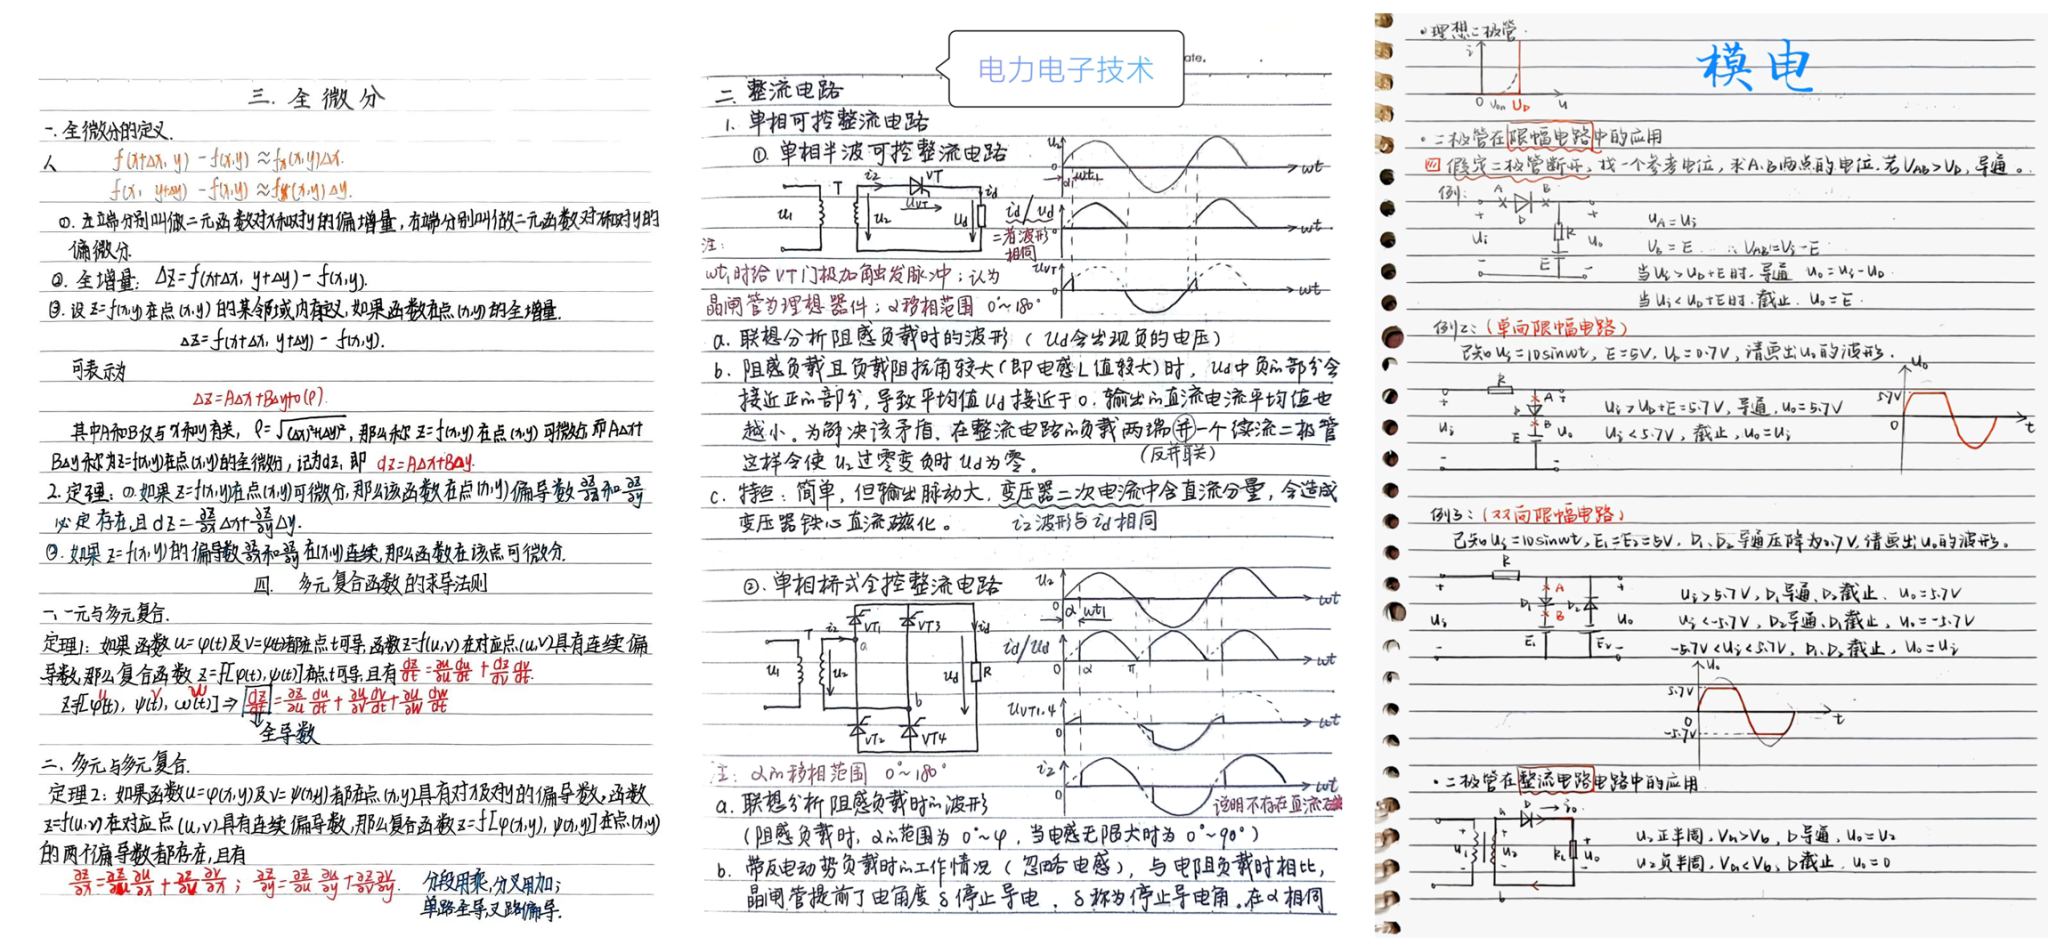 三. 全微分
一. 全微分的定义.
f(x+Δx, y) - f(x,y) ≈ fx(x,y)Δx.
f(x, y+Δy) - f(x,y) ≈ fy(x,y)Δy.
①. 左端分别叫做二元函数对x和对y的偏增量, 右端分别叫做二元函数对x和对y的
偏微分.
②. 全增量: Δz = f(x+Δx, y+Δy) - f(x,y).
③. 设 z=f(x,y)在点(x,y)的某邻域内有定义, 如果函数在点(x,y)的全增量.
Δz = f(x+Δx, y+Δy) - f(x,y).
可表示为
Δz = AΔx + BΔy + o(ρ).
其中A和B仅与x和y有关, ρ = √(Δx)²+(Δy)², 那么称 z=f(x,y)在点(x,y)可微分, 即 AΔx+
BΔy称为z=f(x,y)在点(x,y)的全微分, 记为dz, 即 dz=AΔx+BΔy.
2. 定理: ①.如果 z=f(x,y)在点(x,y)可微分, 那么该函数在点(x,y)偏导数 ∂z/∂x 和 ∂z/∂y
必定存在, 且 dz = ∂z/∂x Δx + ∂z/∂y Δy.
②. 如果 z=f(x,y)的偏导数 ∂z/∂x 和 ∂z/∂y 在(x,y)连续, 那么函数在该点可微分.
四. 多元复合函数的求导法则
一、一元与多元复合.
定理1: 如果函数 u=φ(t)及v=ψ(t)都在点t可导, 函数z=f(u,v)在对应点(u,v)具有连续偏
导数, 那么复合函数 z=f[φ(t), ψ(t)]在点t可导, 且有 dz/dt = ∂z/∂u du/dt + ∂z/∂v dv/dt.
u v w
z=f[φ(t), ψ(t), ω(t)] ⇒ dz/dt = ∂z/∂u du/dt + ∂u/∂v dv/dt + ∂u/∂w dw/dt
全导数
二. 多元与多元复合.
定理2: 如果函数u=φ(x,y)及v=ψ(x,y)都在点(x,y)具有对x及对y的偏导数, 函数
z=f(u,v)在对应点(u,v)具有连续偏导数, 那么复合函数z=f[φ(x,y), ψ(x,y)]在点(x,y)
的两个偏导数都存在, 且有
∂z/∂x = ∂z/∂u ∂u/∂x + ∂z/∂v ∂v/∂x ; ∂z/∂y = ∂z/∂u ∂u/∂y + ∂z/∂v ∂v/∂y.
分段用乘, 分叉用加;
单路全导, 叉路偏导.
ate.
电力电子技术
二 整流电路
1. 单相可控整流电路
①. 单相半波可控整流电路
T i₂ VT id
u₁ u₂ uVT ud
u₂ 0 α ωt₁ ωt
id/ud = 者波形相同 0 ωt
uVT 0 ωt
注:
ωt₁时给VT门极加触发脉冲; 认为
晶闸管为理想器件; α移相范围 0°~180°
a. 联想分析阻感负载时的波形 ( Ud会出现负的电压)
b. 阻感负载且负载阻抗角较大(即电感L值较大)时, Ud中负的部分会
接近正的部分, 导致平均值Ud接近于0. 输出的直流电流平均值也
越小. 为解决该矛盾, 在整流电路的负载两端并一个续流二极管
(反并联)
这样会使 u₂过零变负时 ud为零。
c. 特点: 简单, 但输出脉动大, 变压器二次电流中含直流分量, 会造成
变压器铁心直流磁化。 i₂波形与id相同
②. 单相桥式全控整流电路
T i₂ VT1 VT3 id
u₁ u₂ a b ud R
VT2 VT4
u₂ 0 α ωt₁ ωt
id/ud 0 α π ωt
uVT1.4 0 ωt
i₂ 0 ωt
注: α的移相范围 0°~180°
a. 联想分析阻感负载时的波形
说明不存在直流
(阻感负载时, α的范围为 0°~φ, 当电感无限大时为 0°~90°)
b. 带反电动势负载时的工作情况 ( 忽略电感), 与电阻负载时相比,
晶闸管提前了电角度δ停止导电, δ称为停止导电角. 在α相同
模电
·理想二极管.
i 0 Uon UD u
·二极管在限幅电路中的应用
假定二极管断开, 找一个参考电位, 求A.B两点的电位. 若VAB>VD, 导通。
例:
A B
+ Ui - R E + Uo -
UA = Ui
UB = E ∴ VAB=Vi-E
当Ui>UD+E时. 导通 Uo=Ui-UD
当Ui<UD+E时. 截止. Uo=E.
例2: (单向限幅电路)
已知Ui=10sinωt, E=5V, UD=0.7V, 请画出Uo的波形.
R A D B E
+ Ui - + Uo -
Ui>UD+E=5.7V, 导通, Uo=5.7V
Ui<5.7V, 截止, Uo=Ui
Uo 5.7V 0 t
例3: (双向限幅电路)
已知Ui=10sinωt, E₁=E₂=5V, D₁、D₂导通压降为0.7V, 请画出Uo的波形。
R A D₁ B D₂ E₁
+ Ui - + Uo -
Ui>5.7V, D₁导通、D₂截止. Uo=5.7V
Ui<-5.7V, D₂导通、D₁截止, Uo=-5.7V
-5.7V<Ui<5.7V, D₁、D₂截止, Uo=Ui
Uo 5.7V 0 -5.7V t
·二极管在整流电路电路中的应用
a D io
u₁ u₂ RL uo
b
U₂正半周, Va>Vb, D导通, Uo=U₂
U₂负半周, Va<Vb, D截止. Uo=0